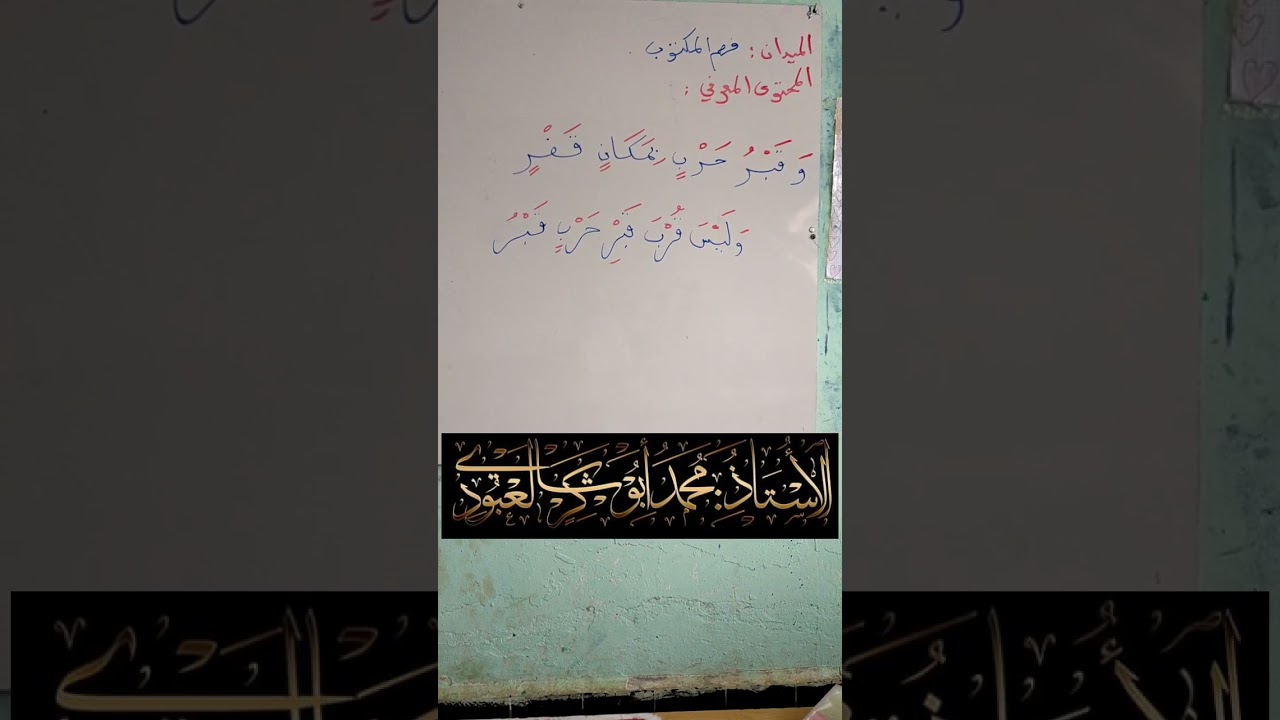 الميدان: فهم المكتوب.
المحتوى المعرفي:
وَقَبْرُ حَرْبٍ بِمَكَانٍ قَفْرٍ
وَلَيْسَ قُرْبَ قَبْرِ حَرْبٍ قَبْرُ
الأُسْتَاذُ: مُحَمَّد أَبُو